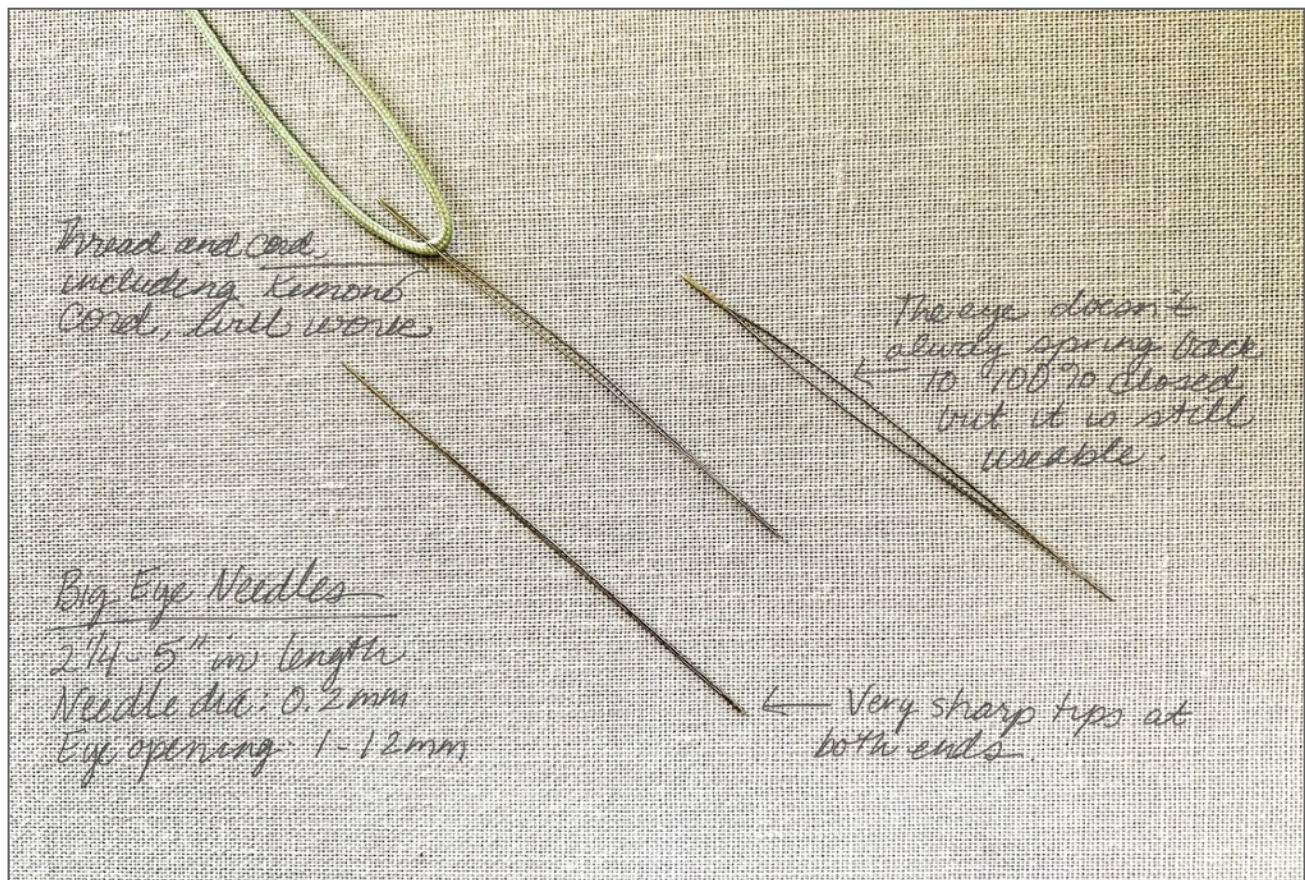 Thread and cord,
including Kimono
Cord, will work
The eye doesn't
alway spring back
to 100% closed
but it is still
useable.
Big Eye Needles
2 1/4 - 5" in length
Needle dia: 0.2mm
Eye opening: 1-12mm
Very sharp tips at
both ends.